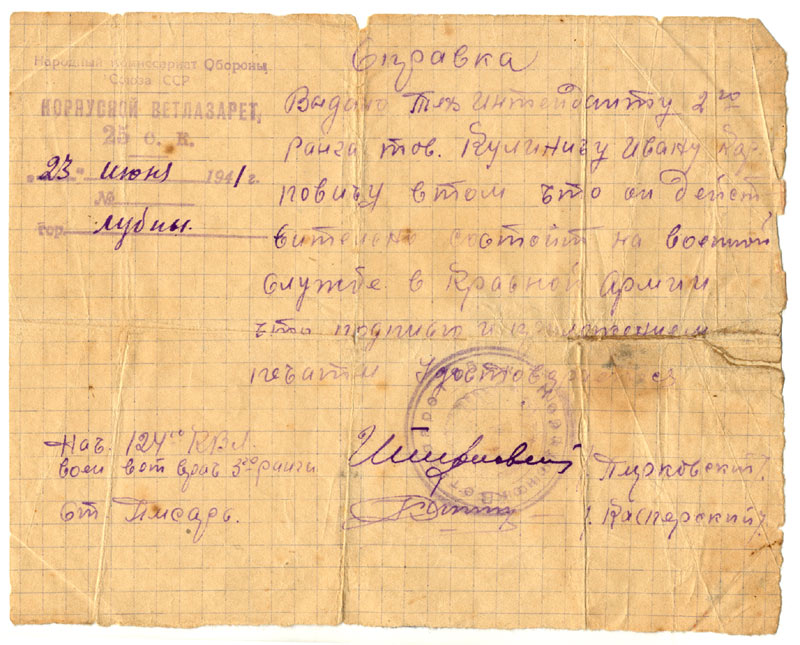 Народный Комиссариат Обороны
Союза ССР
КОРПУСНОЙ ВЕТЛАЗАРЕТ,
25 с. к.
"23" июня 1941 г.
№
гор. Лубны.
Справка
Выдано Тех Интенданту 2го
ранга тов. Кулиничу Ивану Кар
повичу в том что он дейст
вительно состоит на военной
службе в Красной Армии
что подписью и приложением
печати Удостоверяется
Нач. 124го КВЛ.
воен вет врач 3го ранга
/Пурковский/.
Ст. Писарь.
/. Касперский/.